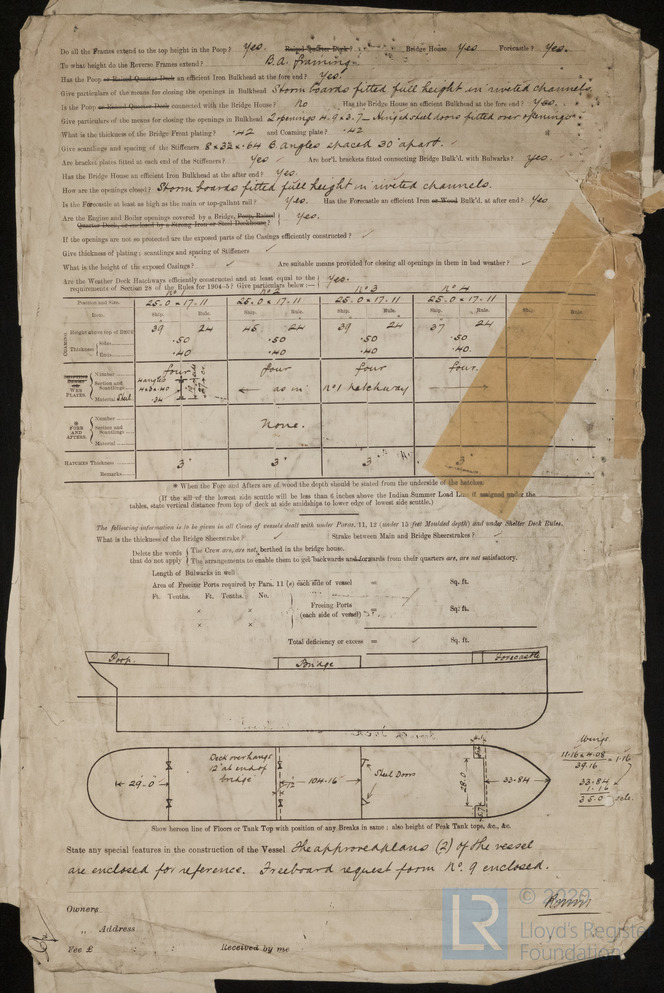 Do all the Frames extend to the top height in the Poop? Yes. Raised Quarter Deck? Bridge House Yes Forecastle? Yes.
To what height do the Reverse Frames extend? B.A. framing.
Has the Poop or Raised Quarter Deck an efficient Iron Bulkhead at the fore end? Yes.
Give particulars of the means for closing the openings in Bulkhead Storm boards fitted full height in riveted channels.
Is the Poop or Raised Quarter Deck connected with the Bridge House? No Has the Bridge House an efficient Bulkhead at the fore end? Yes.
Give particulars of the means for closing the openings in Bulkhead 2 openings 4.9 x 3.7 – Hinged steel doors fitted over openings.
What is the thickness of the Bridge Front plating? .42 and Coaming plate? .42
Give scantlings and spacing of the Stiffeners B. Angles spaced 30" apart.
Are bracket plates fitted at each end of the Stiffeners? Yes Are hor'l. brackets fitted connecting Bridge Bulk'd. with Bulwarks? Yes.
Has the Bridge House an efficient Iron Bulkhead at the after end? Yes.
How are the openings closed? Storm boards fitted full height in riveted channels.
Is the Forecastle at least as high as the main or top-gallant rail? Yes. Has the Forecastle an efficient Iron or Wood Bulk'd. at after end? Yes
Are the Engine and Boiler openings covered by a Bridge, Poop, Raised
Quarter Deck, or enclosed by a Strong Iron or Steel Deckhouse? Yes.
If the openings are not so protected are the exposed parts of the Casings efficiently constructed?
Give thickness of plating; scantlings and spacing of Stiffeners
What is the height of the exposed Casings? Are suitable means provided for closing all openings in them in bad weather?
Are the Weather Deck Hatchways efficiently constructed and at least equal to the
requirements of Section 28 of the Rules for 1904–5? Give particulars below:— Yes.
No 1 No 2 No 3 No 4
Position and Size. 25.0 x 17.11 25.0 x 17.11 25.0 x 17.11 25.0 x 17.11
Item. Ship. Rule. Ship. Rule. Ship. Rule. Ship. Rule. Ship. Rule.
COAMING Height above top of DECK 39 24 45 24 39 24 37 24
Thickness Sides .50 .50 .50 .50
Ends .40 .40 .40 .40.
WEB PLATES. Number four four four four.
Section and Scantlings Hangles 4 x 3 x .40 as in No 1 hatchway
Material Steel .34
* FORE AND AFTERS. Number
Section and Scantlings None.
Material
HATCHES Thickness 3" 3" 3" 3"
Remarks
* When the Fore and Afters are of wood the depth should be stated from the underside of the hatches.
(If the sill of the lowest side scuttle will be less than 6 inches above the Indian Summer Load Line if assigned under the
tables, state vertical distance from top of deck at side amidships to lower edge of lowest side scuttle.)
The following information is to be given in all Cases of vessels dealt with under Paras. 11, 12 (under 15 feet Moulded depth) and under Shelter Deck Rules.
What is the thickness of the Bridge Sheerstrake? Strake between Main and Bridge Sheerstrakes?
Delete the words The Crew are, are not, berthed in the bridge house.
that do not apply The arrangements to enable them to get backwards and forwards from their quarters are, are not satisfactory.
Length of Bulwarks in well
Area of Freeing Ports required by Para. 11 (e) each side of vessel = Sq. ft.
Ft. Tenths. Ft. Tenths. No.
× × Freeing Ports
(each side of vessel) = Sq. ft.
× ×
Total deficiency or excess = Sq. ft.
Poop. Bridge Forecastle
Deck overhangs
12" at end of
bridge
29'-0" 12" 104.16 Steel Doors 28.0 33.84
Wings.
11.16 x 4.08
39.16 = 1.16
33.84
1.16
35.0
Show hereon line of Floors or Tank Top with position of any Breaks in same; also height of Peak Tank tops, &c., &c.
State any special features in the construction of the Vessel The approved plans (2) of the vessel
are enclosed for reference. Freeboard request form No. 9 enclosed.
Owners
„ Address
Fee £ Received by me
© 2020
LR
Lloyd's Register
Foundation